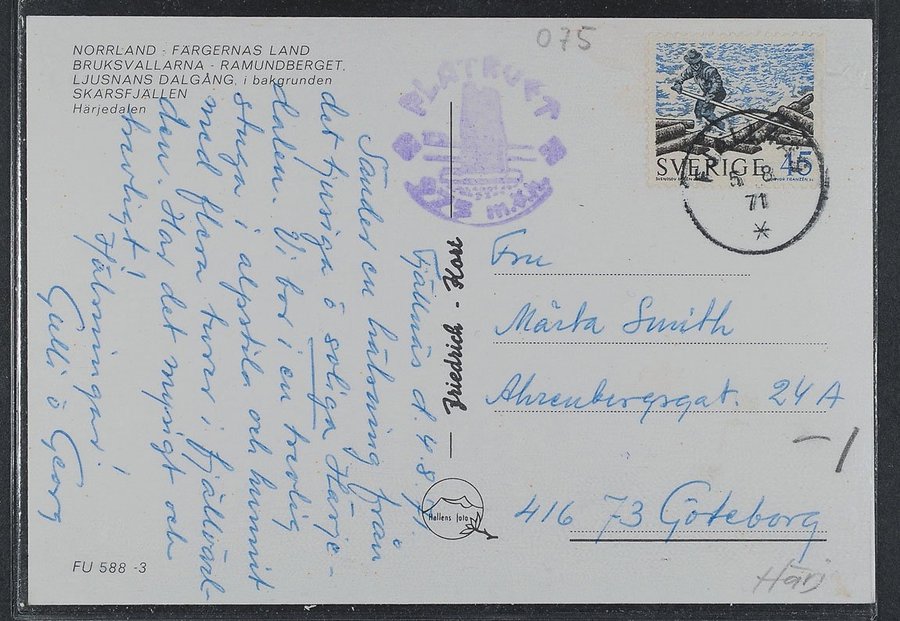 NORRLAND - FÄRGERNAS LAND
BRUKSVALLARNA - RAMUNDBERGET.
LJUSNANS DALGÅNG, i bakgrunden
SKARSFJÄLLEN
Härjedalen
075
PLATRUET
m.ö.h.
SVERIGE 45
5 8
71
Fjällnäs d. 4.8.71.
Sänder en hälsning från
det tjusiga o soliga Härje-
dalen. Vi bor i en trevlig
stuga i alpstil o och hunnit
med flera turer i fjällvärl-
den. Har det mysigt och
trevligt!
Hälsningar!
Gulli o Georg
Friedrich - Kort
Hallens foto
Fru
Märta Smith
Ahrenbergsgat. 24 A
416 73 Göteborg
Härj
FU 588 -3